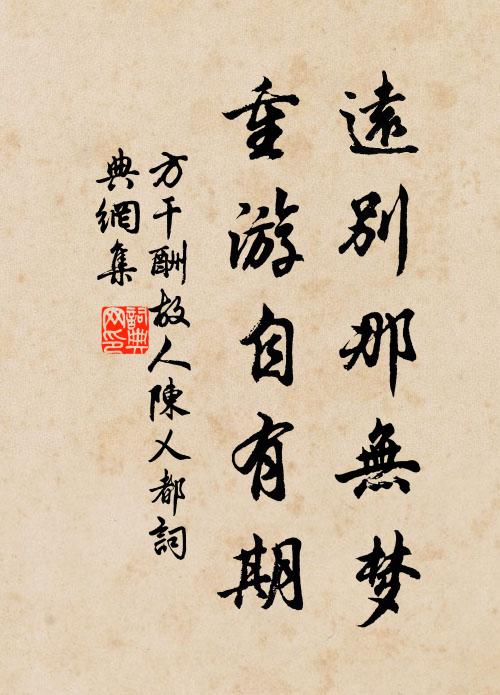 遠別那無梦
重游自有期
方干酬故人陳乂都詞
典網集
詞典
网印